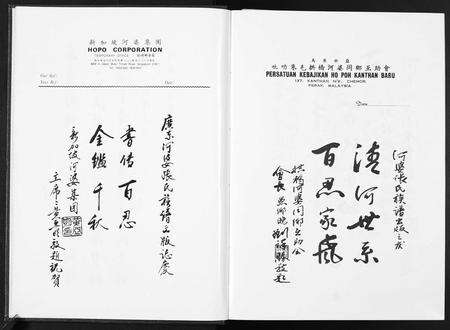 新加坡河婆集团
HOPO CORPORATION
Our Ref:
Your Ref:
Date:
廣东河婆張氏族譜出版誌慶
書傳百忍
金鑑千秋
新加坡河婆集团
主席
敬題祝賀
吡叻朱毛拱橋河婆同鄉互助會
PERSATUAN KEBAJIKAN HO POH KANTHAN BARU
137, KANTHAN, N/V., CHEMOR,
PERAK, MALAYSIA.
Date
河婆張氏族譜出版之慶
清河世系
百忍家风
拱桥河婆同鄉互助會
會長
敬題